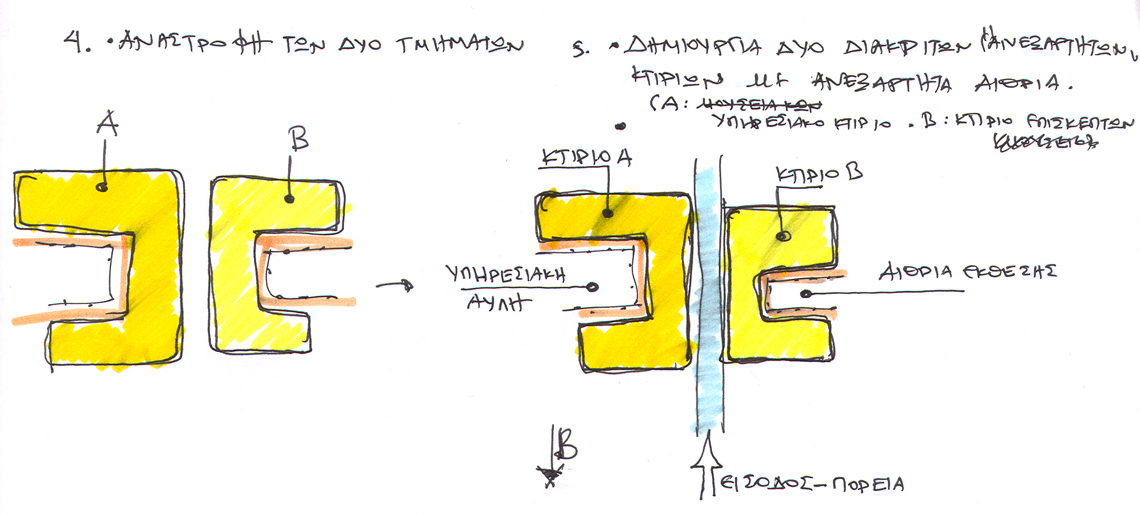 4. • ΑΝΑΣΤΡΟΦΗ ΤΩΝ ΔΥΟ ΤΜΗΜΑΤΩΝ
5. • ΔΗΜΙΟΥΡΓΙΑ ΔΥΟ ΔΙΑΚΡΙΤΩΝ (ΑΝΕΞΑΡΤΗΤΩΝ)
ΚΤΙΡΙΩΝ ΜΕ ΑΝΕΞΑΡΤΗΤΑ ΑΙΘΡΙΑ.
(Α: ΜΟΥΣΕΙΑΚΩΝ
ΥΠΗΡΕΣΙΑΚΟ ΚΤΙΡΙΟ . Β: ΚΤΙΡΙΟ ΕΠΙΣΚΕΠΤΩΝ
Α
Β
ΚΤΙΡΙΟ Α
ΚΤΙΡΙΟ Β
ΥΠΗΡΕΣΙΑΚΗ
ΑΥΛΗ
ΑΙΘΡΙΑ ΕΚΘΕΣΗΣ
Β
ΕΙΣΟΔΟΣ-ΠΟΡΕΙΑ